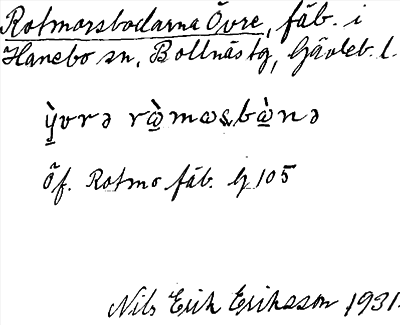 Rotmorsbodarna Övre, fäb. i
Hanebo sn, Bollnäs tg, Gävleb. l.
ỳ̱vrə rὼ̱mωsbὼ̱nə
Öf. Rotmo fäb. G 105
Nils Erik Eriksson 1931.